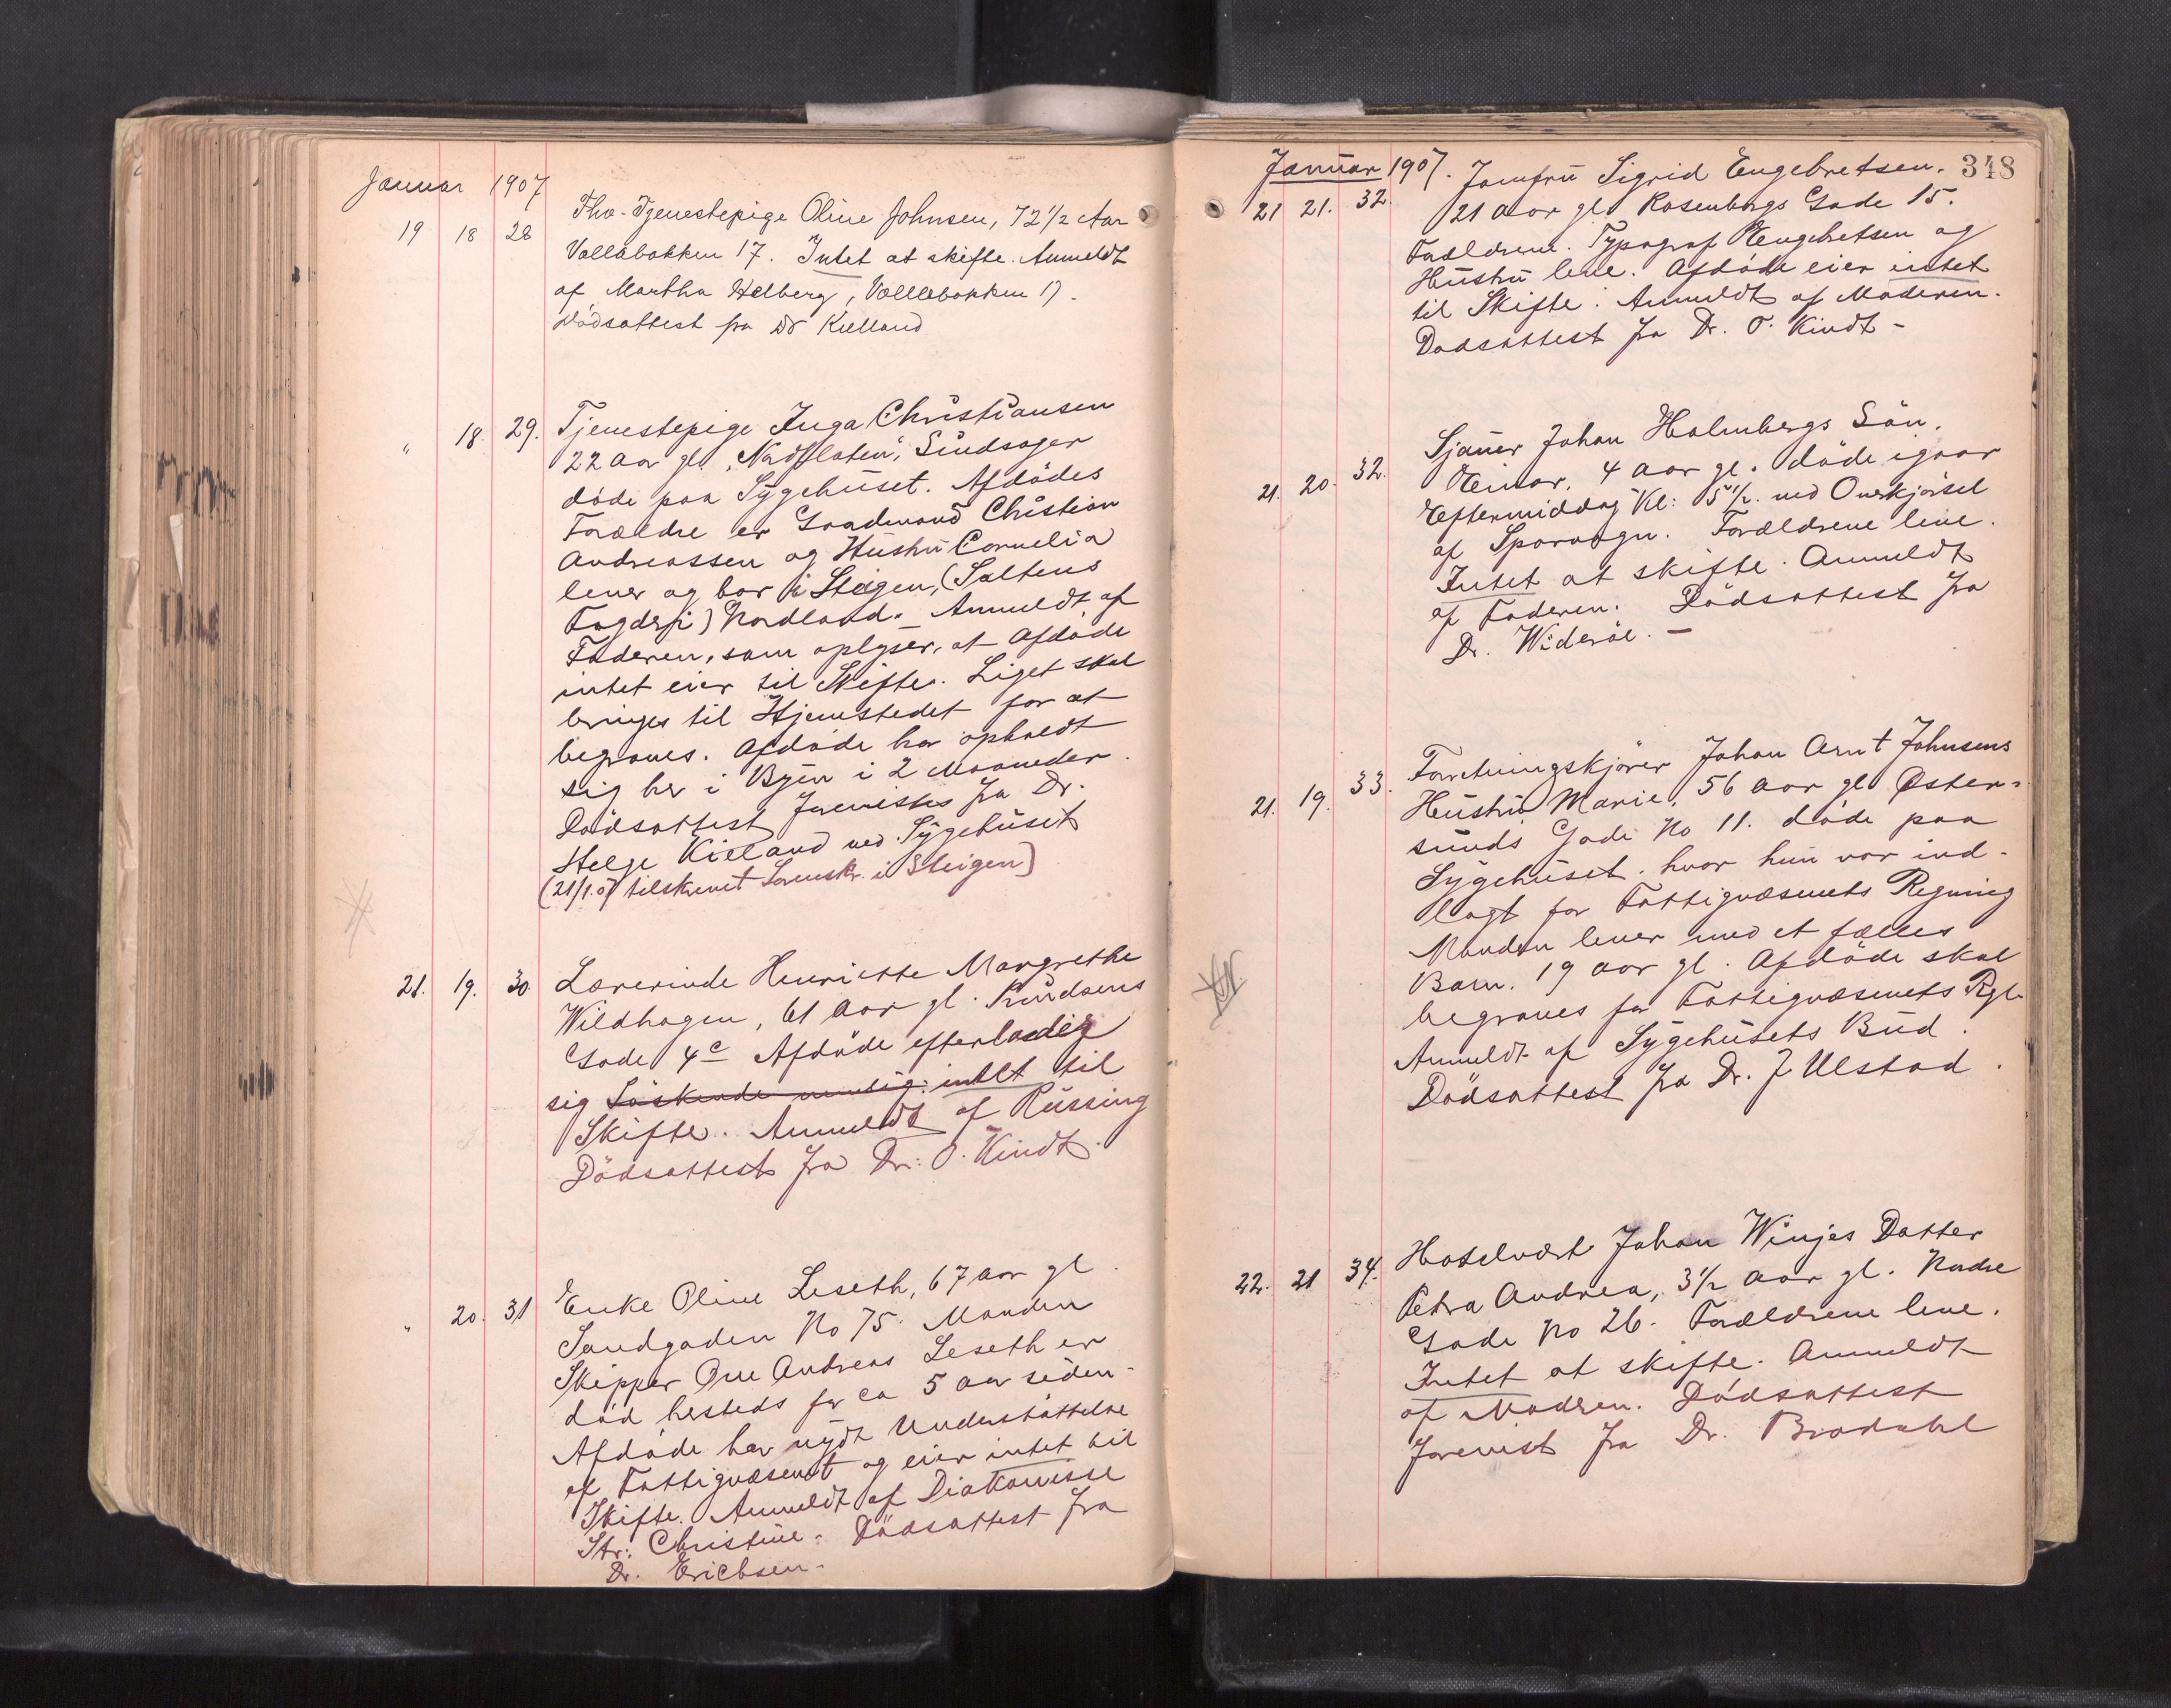 Januar 1907
19 18 28 Fhv. Tjenestepige Oline Johnsen, 72 1/2 Aar
Vollabakken 17. Intet at skifte. Anmeldt
af Martha Helberg, Vollabakken 17.
Dødsattest fra Dr Kielland
" 18. 29. Tjenestepige Inga Christiansen
22 Aar gl. Sindsyge
døde paa Sygehuset. Afdødes
Forældre er Gaardmand Christian
Andreassen og Hustru Cornelia
lever og bor i Steigen, (Saltens
Fogderi) Nordland. Anmeldt af
Faderen, som oplyser, at Afdøde
intet eier til Skifte. Liget skal
bringes til Hjemstedet for at
begraves. Afdøde har opholdt
sig her i Byen i 2 Maaneder.
Dødsattest forevistes fra Dr.
Helge Kielland ved Sygehuset
(21/1.07 tilskrevet Lensm. i Steigen)
21. 19. 30 Lærerinde Henriette Margrethe
Wildhagen, 61 Aar gl. Knudsens
Gade 4c Afdøde efterlader
sig Søskende myndig: intet til
Skifte. Anmeldt af Rüssing
Dødsattest fra Dr: O. Kindt.
" 20. 31 Enke Oline Leseth, 67 Aar gl.
Sandgaden No 75. Manden
Skipper Ove Andreas Leseth er
død hersteds for ca 5 Aar siden.
Afdøde har nydt Understøttelse
af Fattigvæsenet og eier intet til
Skifte. Anmeldt af Diakonisse
Str: Christine. Dødsattest fra
Dr. Erichsen.
348
Januar 1907.
21 21. 32. Jomfru Sigrid Engebretsen.
21 Aar gl. Rosenborgs Gade 15.
Forældrene. Typograf Engebretsen og
Hustru leve. Afdøde eier intet
til Skifte. Anmeldt af Moderen.
Dødsattest fra Dr. O. Kindt -
21. 20. 32. Sjauer Johan Holmbergs Søn,
Einar, 4 Aar gl. døde igaar
Eftermiddag Kl: 5 1/2 ved Overkjørsel
af Sporvogn. Forældrene leve.
Intet at skifte. Anmeldt
af Faderen. Dødsattest fra
Dr. Widerøe. -
21. 19. 33. Forretningskjører Johan Arnt Johnsens
Hustru Marie, 56 Aar gl. Øster-
sunds Gade No 11. døde paa
Sygehuset, hvor hun var ind-
lagt for Fattigvæsenets Regning
Manden lever med et fælles
Barn. 19 Aar gl. Afdøde skal
begraves for Fattigvæsenets Rgl.
Anmeldt af Sygehusets Bud.
Dødsattest fra Dr. J Ulstad.
22. 21 34. Hotelvært Johan Winjes Datter
Petra Andrea, 3 1/2 Aar gl. Nordre
Gade No 26. Forældrene leve.
Intet at skifte. Anmeldt
af Moderen. Dødsattest
forevist fra Dr. Brodahl